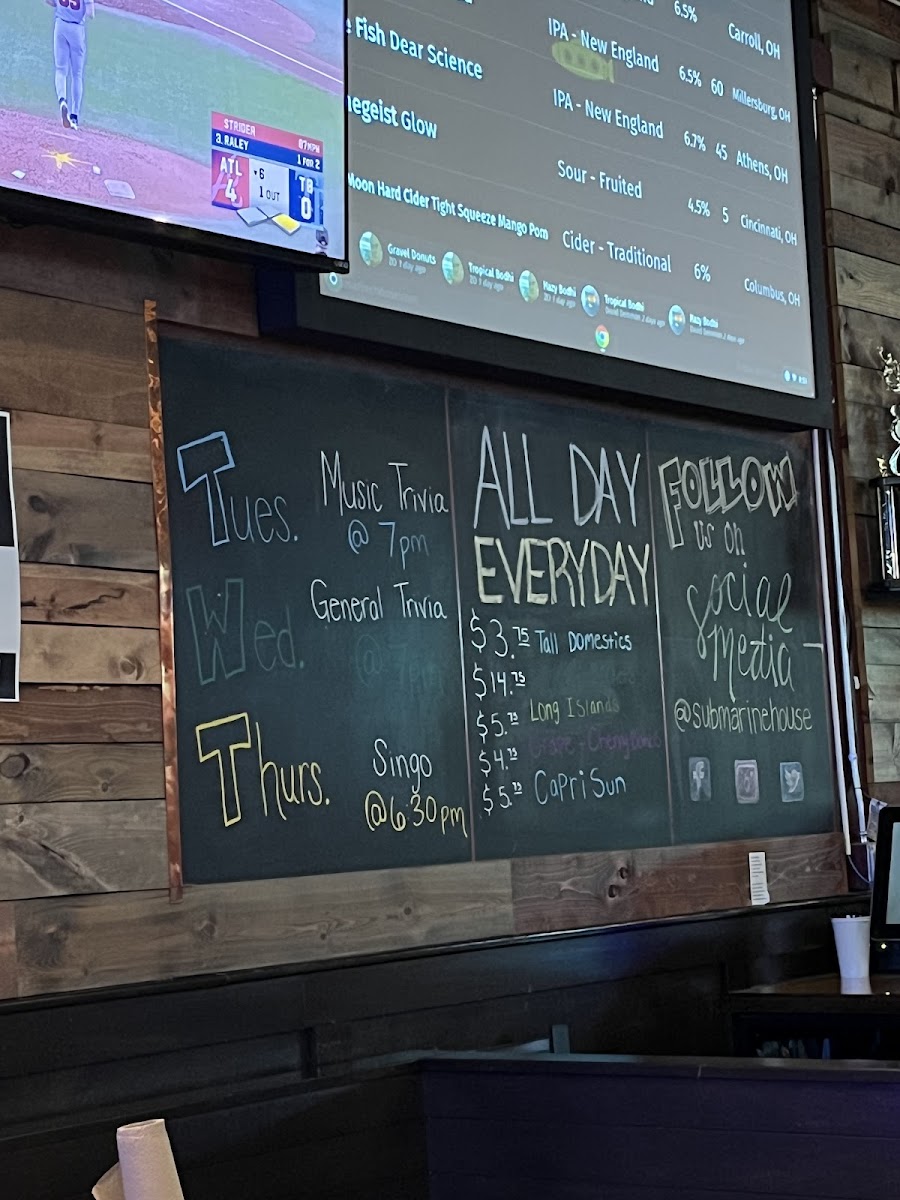 STRIDER 87 MPH
3. RALEY 1 FOR 2
ATL 4
6
1 OUT
TB 0
6.5%
Carroll, OH
Fish Dear Science
IPA - New England
6.5% 60 Millersburg, OH
negeist Glow
IPA - New England
6.7% 45 Athens, OH
Sour - Fruited
4.5% 5 Cincinnati, OH
Moon Hard Cider Tight Squeeze Mango Pom
Cider - Traditional
6% Columbus, OH
Gravel Donuts
ZD 1 day ago
Tropical Bodhi
ZD 1 day ago
Hazy Bodhi
ZD 1 day ago
Tropical Bodhi
David Denniman 2 days ago
Hazy Bodhi
David Denniman 2 days ago
Tues. Music Trivia
@ 7pm
Wed. General Trivia
@ 7pm
Thurs. Singo
@6:30pm
ALL DAY
EVERYDAY
$3.75 Tall Domestics
$14.75
$5.75 Long Islands
$4.75 Grape + Cherry Bombs
$5.75 CapriSun
FOLLOW
us on
social
media -
@submarinehouse